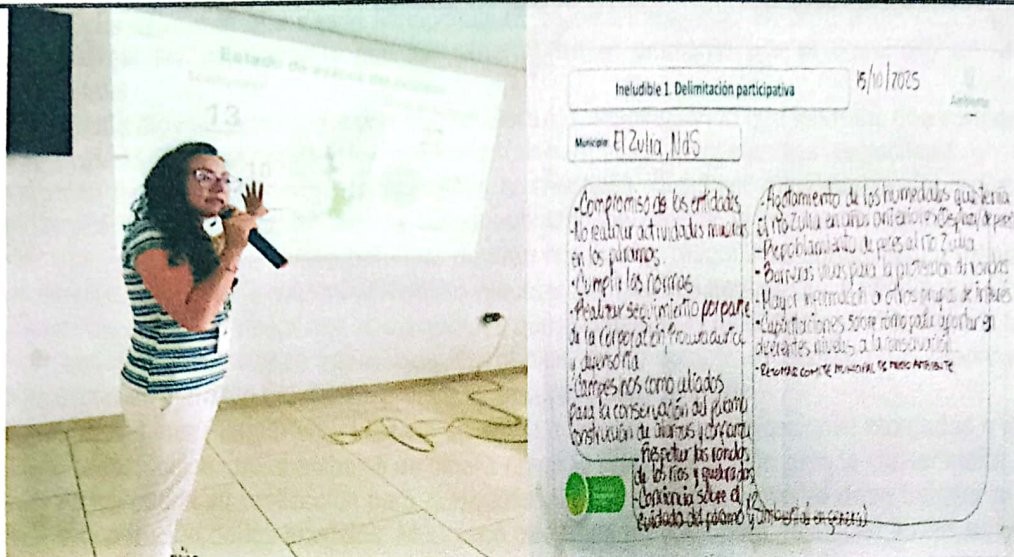 Estado de avance
13
Ineludible 1. Delimitación participativa
15/10/2025
Ambiente
Municipio: El Zulia, NdS
- Compromiso de los entidades
- No realizar actividades
en los páramos
- Cumplir las normas
- Realizar seguimiento por parte
de la corporación
- Campesinos como aliados
para la conservación del páramo
construcción de
- Respetar las rondas
de los ríos y quebradas
- Conciencia sobre el
cuidado del páramo y ambiental en general
- Agotamiento de los humedales que tenía
el río Zulia en años anteriores
- Repoblamiento de peces al río Zulia
- Barreras vivas para la protección de rondas
- Mayor información a otros grupos de interés
- Capacitaciones sobre cómo aportar en
diferentes niveles a la conservación.
- RETOMAR COMITÉ MUNICIPAL DE MEDIO AMBIENTE